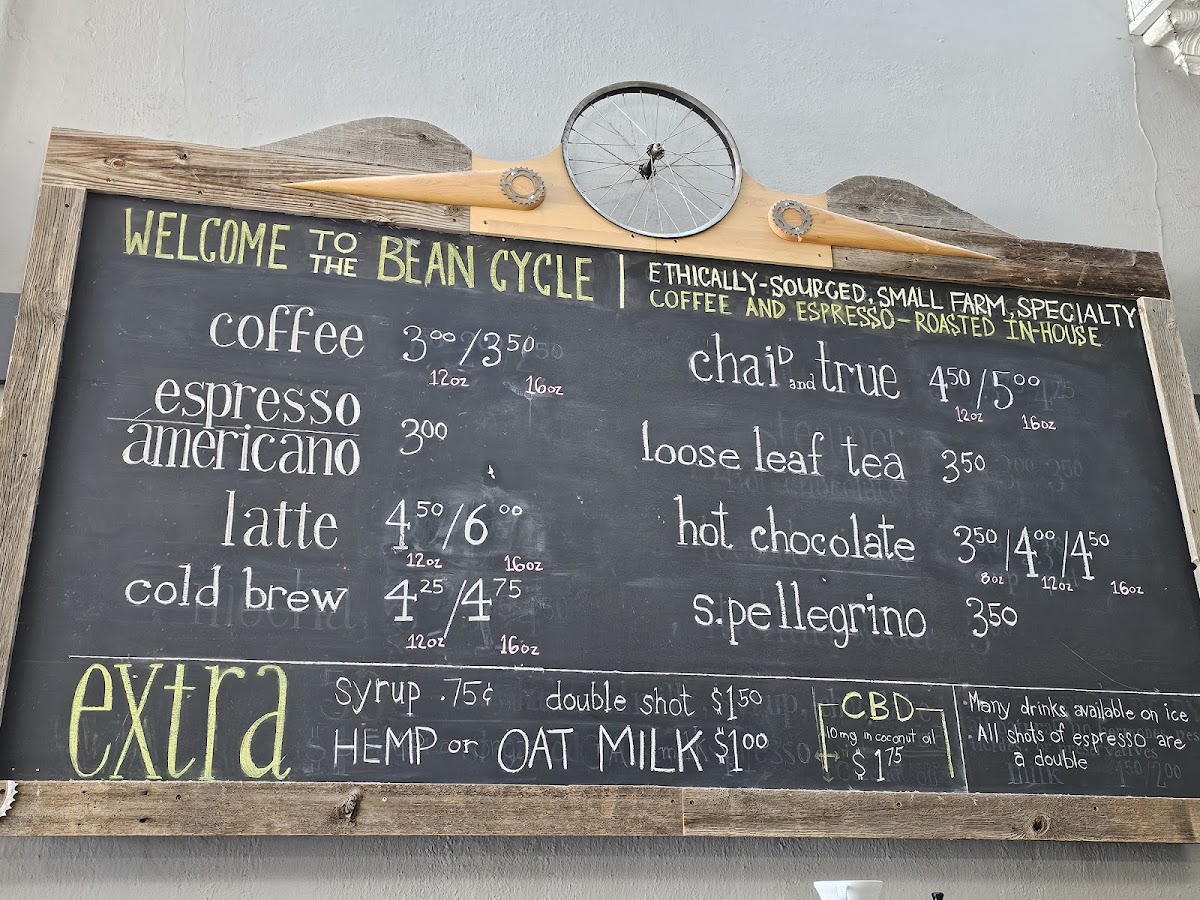 WELCOME TO THE BEAN CYCLE
ETHICALLY-SOURCED, SMALL FARM, SPECIALTY
COFFEE AND ESPRESSO-ROASTED IN-HOUSE
coffee 3⁰⁰/3⁵⁰
12oz 16oz
espresso
americano
3⁰⁰
latte 4⁵⁰/6⁰⁰
12oz 16oz
cold brew 4²⁵/4⁷⁵
12oz 16oz
chai and true 4⁵⁰/5⁰⁰
12oz 16oz
loose leaf tea 3⁵⁰
hot chocolate 3⁵⁰/4⁰⁰/4⁵⁰
8oz 12oz 16oz
s.pellegrino 3⁵⁰
extra
syrup .75¢ double shot $1⁵⁰
HEMP or OAT MILK $1⁰⁰
CBD
10mg in coconut oil
$1⁷⁵
Many drinks available on ice
All shots of espresso are
a double